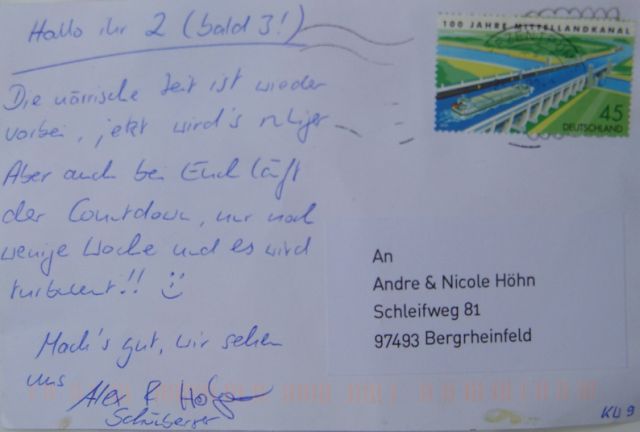 Hallo ihr 2 (bald 3!)
Die närrische Zeit ist wieder
vorbei, jetzt wird's ruhiger
Aber auch bei Euch läuft
der Countdown, nur noch
wenige Woche und es wird
turbulent!!
Mach's gut, wir sehen
uns
Alex & Holger
100 JAHRE MITTELLANDKANAL
45
DEUTSCHLAND
An
Andre & Nicole Höhn
Schleifweg 81
97493 Bergrheinfeld